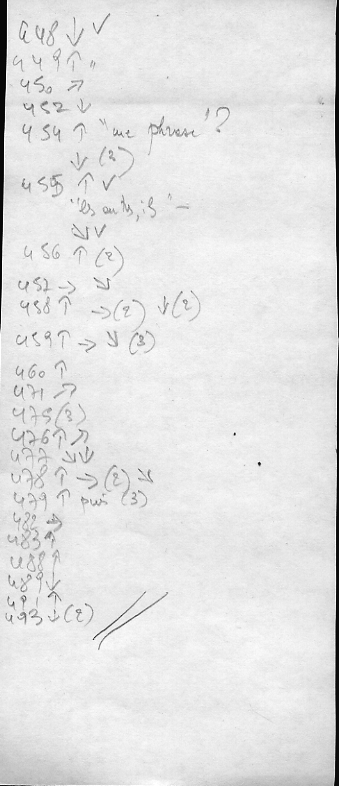 448 ↓ ✓
449 ↑ "
450 ↗
452 ↓
454 ↑ "une phrase"?
↓ (2)
455 ↑ ✓
↘ ✓
456 ↑ (2)
457 → ↘
458 ↑ → (2) ↓ (2)
459 ↑ → ↘ (3)
460 ↑
471 ↗
475 (3)
476 ↑ ↗
477 ↘ ↘
478 ↑ → (2) ↘
479 ↑ puis (3)
482 →
483 ↑
488 ↑
489 ↓
491 ↑
493 ↓ (2)